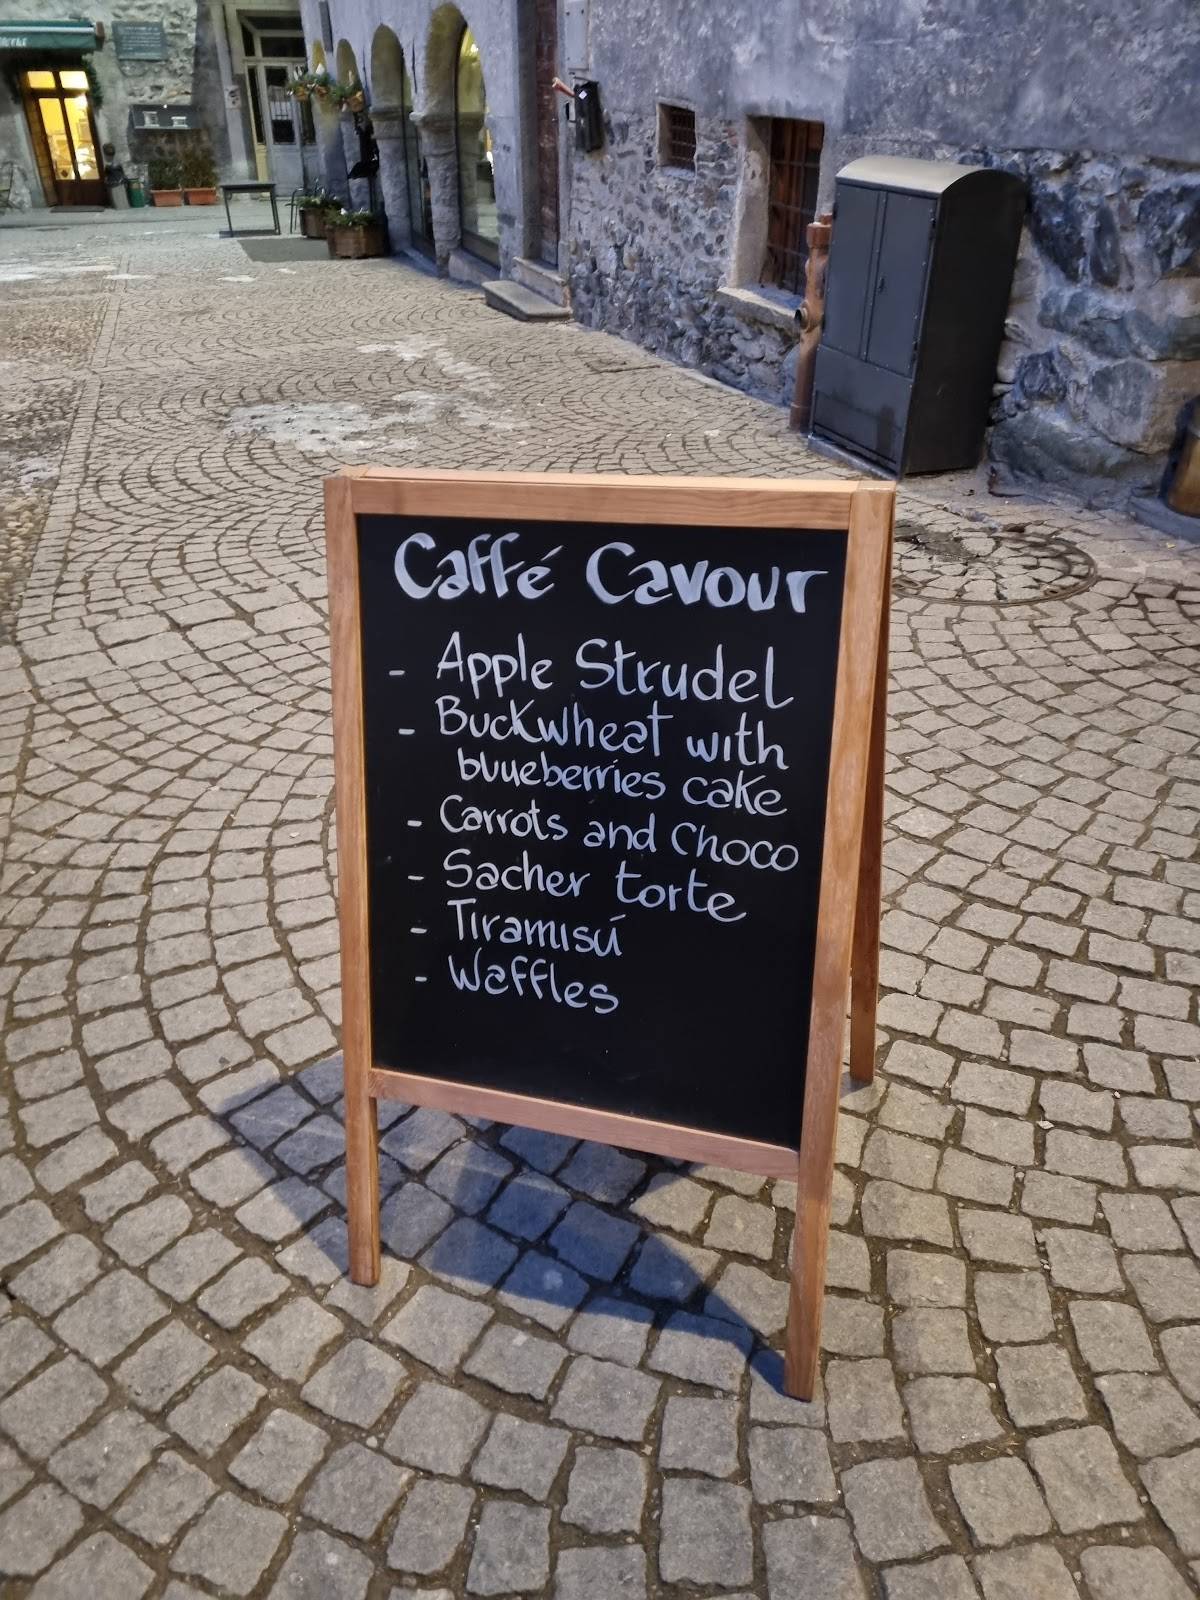 Caffé Cavour
- Apple Strudel
- Buckwheat with
bluueberries cake
- Carrots and Choco
- Sacher torte
- Tiramisú
- Waffles